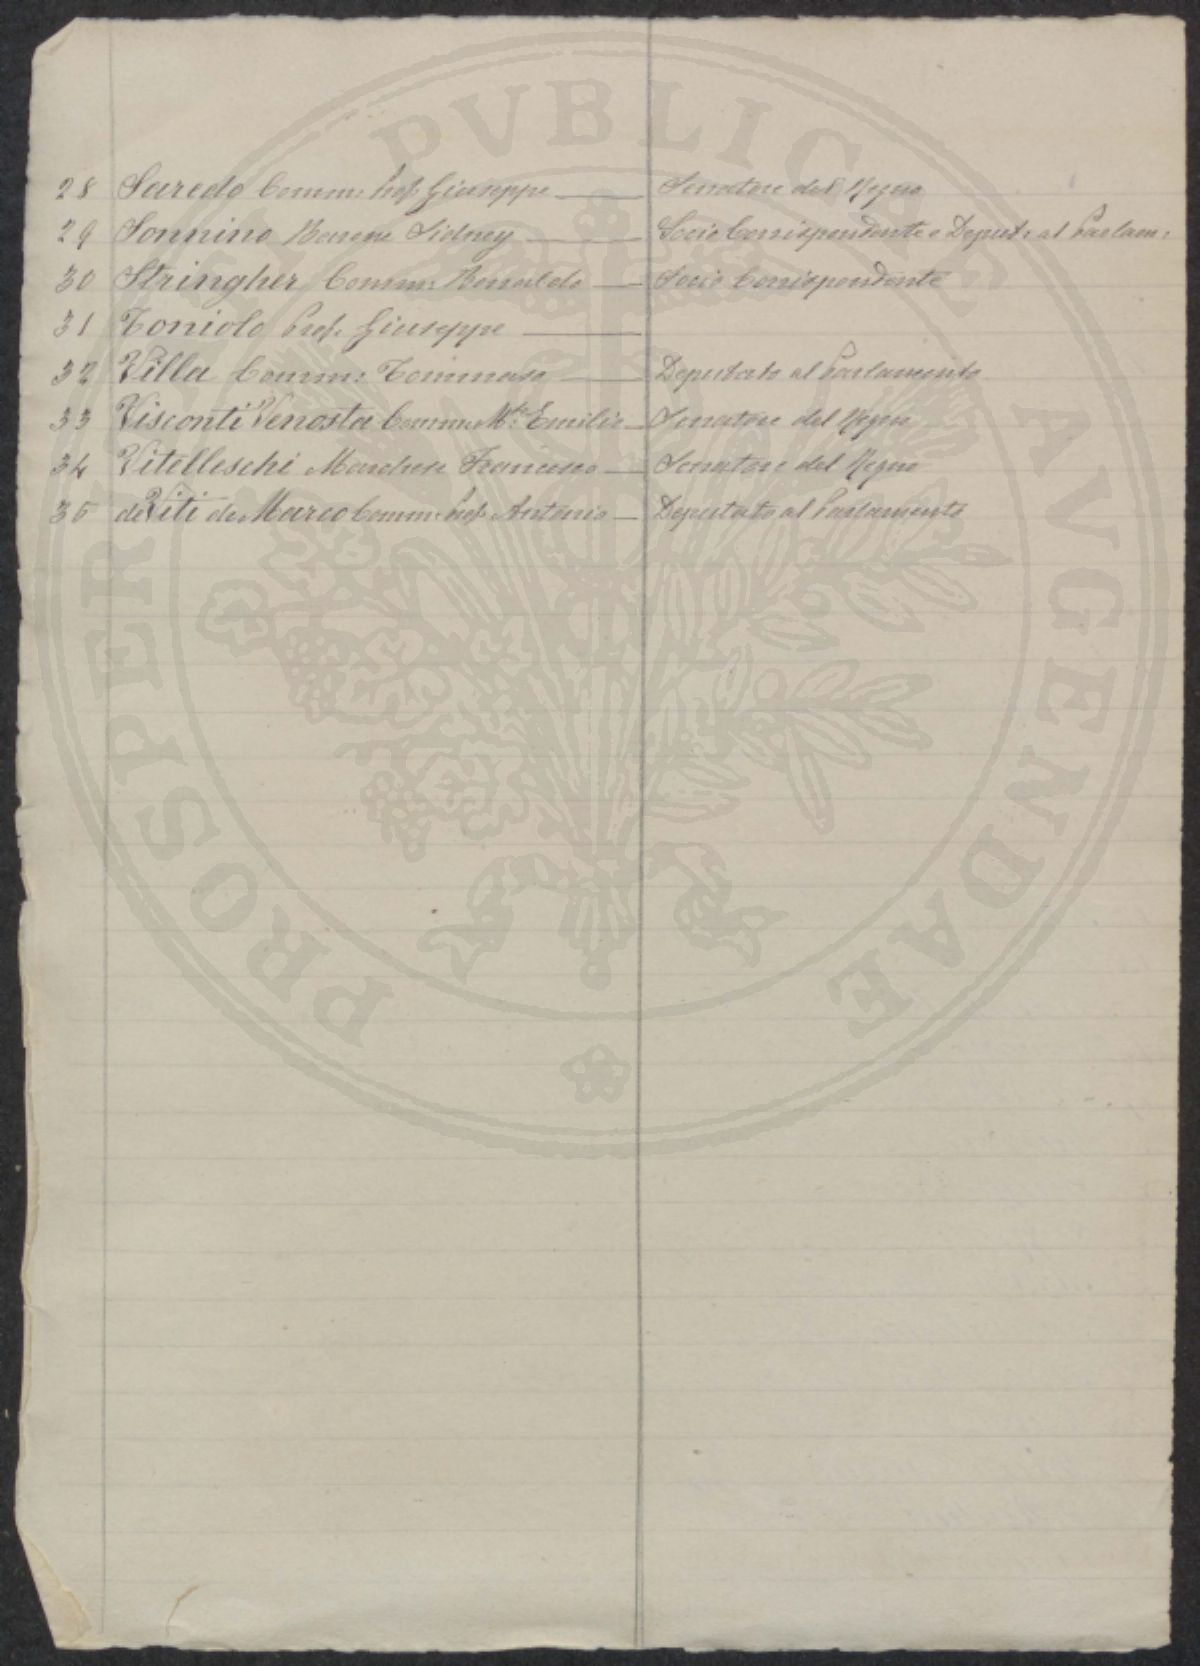 28 Saredo Comm: Prof. Giuseppe — Senatore del Regno
29 Sonnino Barone Sidney — Socio Corrispondente e Deput: al Parlam:
30 Stringher Comm: Bonaldo — Socio Corrispondente
31 Toniolo Prof. Giuseppe —
32 Villa Comm: Tommaso — Deputato al Parlamento
33 Visconti Venosta Comm: M.se Emilio — Senatore del Regno
34 Vitelleschi Marchese Francesco — Senatore del Regno
35 de Viti de Marco Comm: Prof. Antonio — Deputato al Parlamento
PROSPERITATI PVBLICAE AVGENDAE